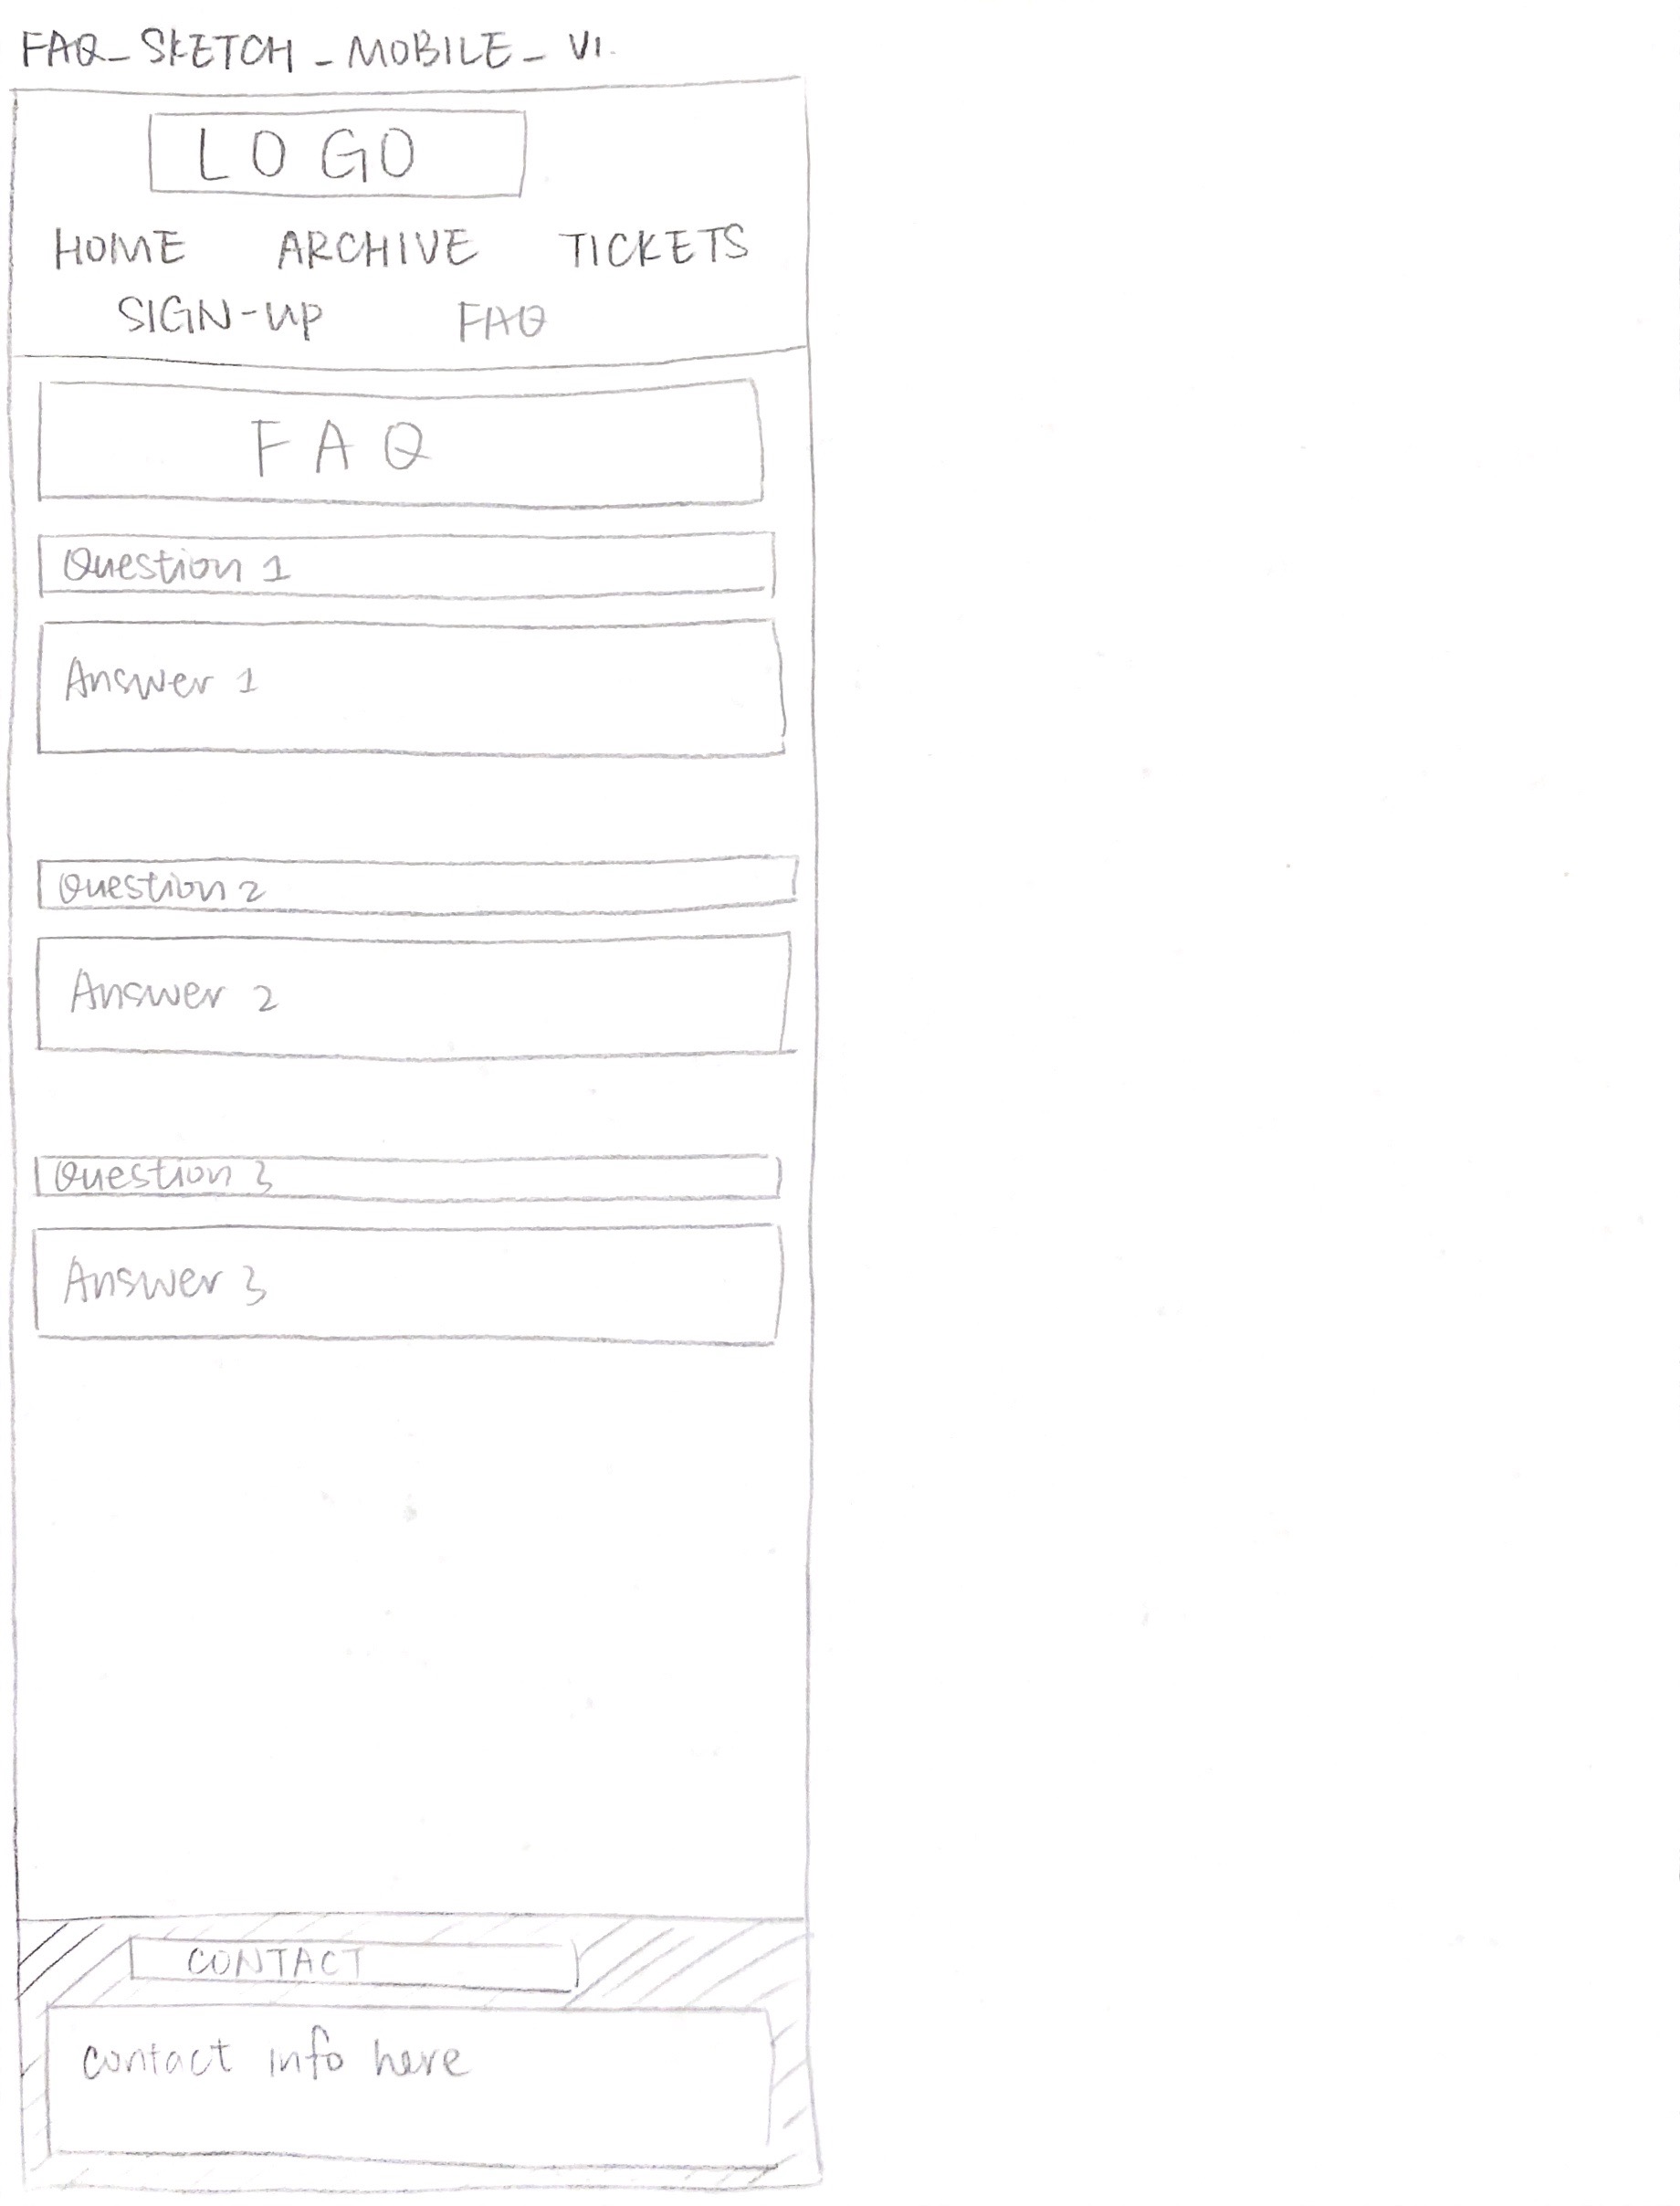 FAQ_SKETCH_MOBILE_V1.
LOGO
HOME ARCHIVE TICKETS
SIGN-UP FAQ
FAQ
Question 1
Answer 1
Question 2
Answer 2
Question 3
Answer 3
CONTACT
contact info here